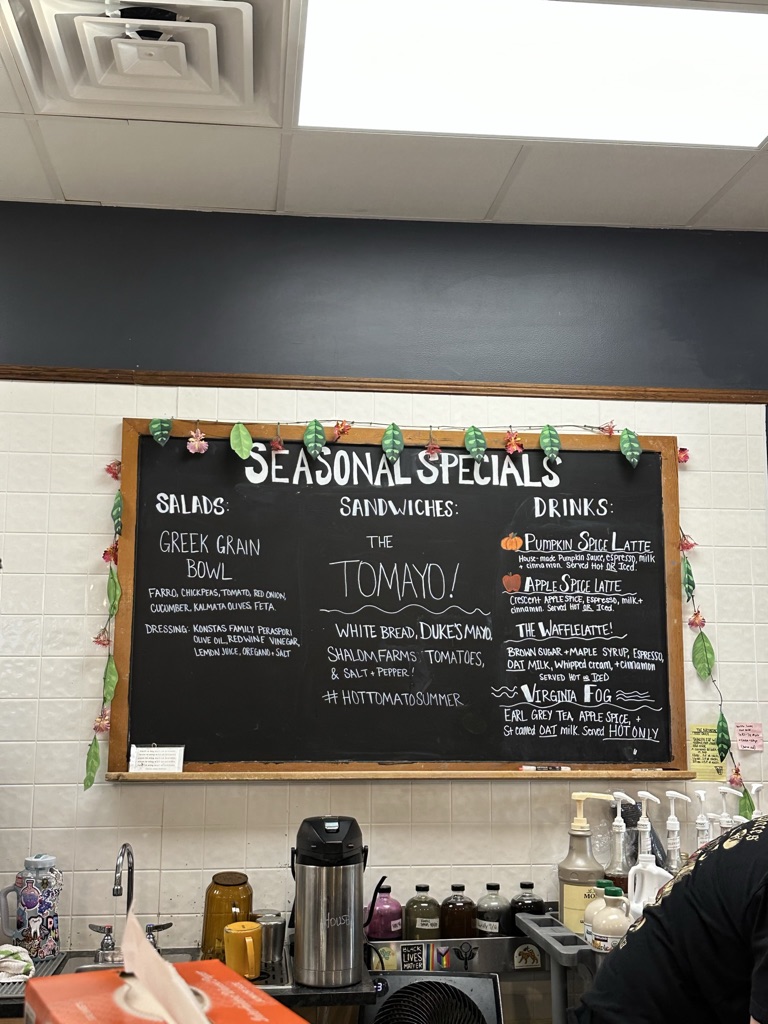 SEASONAL SPECIALS
SALADS:
GREEK GRAIN
BOWL
FARRO, CHICKPEAS, TOMATO, RED ONION,
CUCUMBER, KALMATA OLIVES, FETA.
DRESSING: KONSTAS FAMILY PERASPORI
OLIVE OIL, RED WINE VINEGAR,
LEMON JUICE, OREGANO + SALT
SANDWICHES:
THE
TOMAYO!
WHITE BREAD, DUKE'S MAYO,
SHALOM FARMS TOMATOES,
& SALT + PEPPER!
#HOTTOMATOSUMMER
DRINKS:
PUMPKIN SPICE LATTE
House-made Pumpkin Sauce, espresso, milk
+ cinnamon. Served Hot OR Iced.
APPLE SPICE LATTE
Crescent APPLE SPICE, Espresso, milk +
cinnamon. Served HOT OR Iced.
THE WAFFLELATTE!
BROWN SUGAR + MAPLE SYRUP, ESPRESSO,
OAT MILK, Whipped cream, + cinnamon
SERVED HOT OR ICED
VIRGINIA FOG
EARL GREY TEA, APPLE SPICE, +
Steamed OAT milk. Served HOT ONLY
House
BLACK
LIVES
MATTER